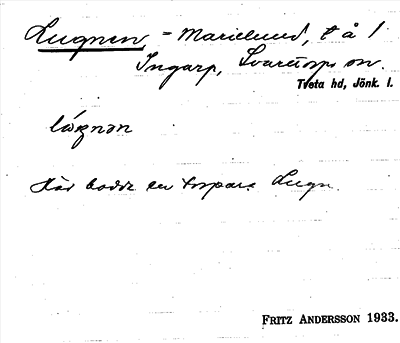 Lugnen - Marielund, t å 1
Ingarp, Svarttorps sn.
Tveta hd, Jönk. l.
lúgnən
Här bodde en torpare Lugn.
FRITZ ANDERSSON 1933.